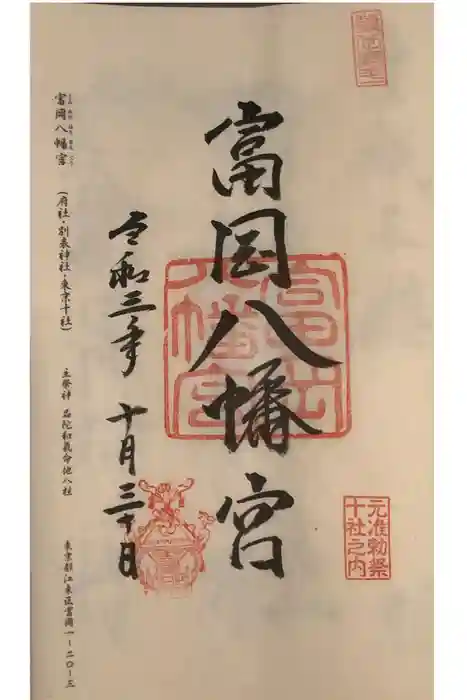 元准勅祭
十社之内
富岡八幡宮
富岡
八幡宮
令和三年 十月三十日
富岡八幡宮 (府社・別表神社・東京十社) 主祭神 品陀和氣命他八柱 東京都江東区富岡一-二〇-三
とみ おか はち まん ぐう